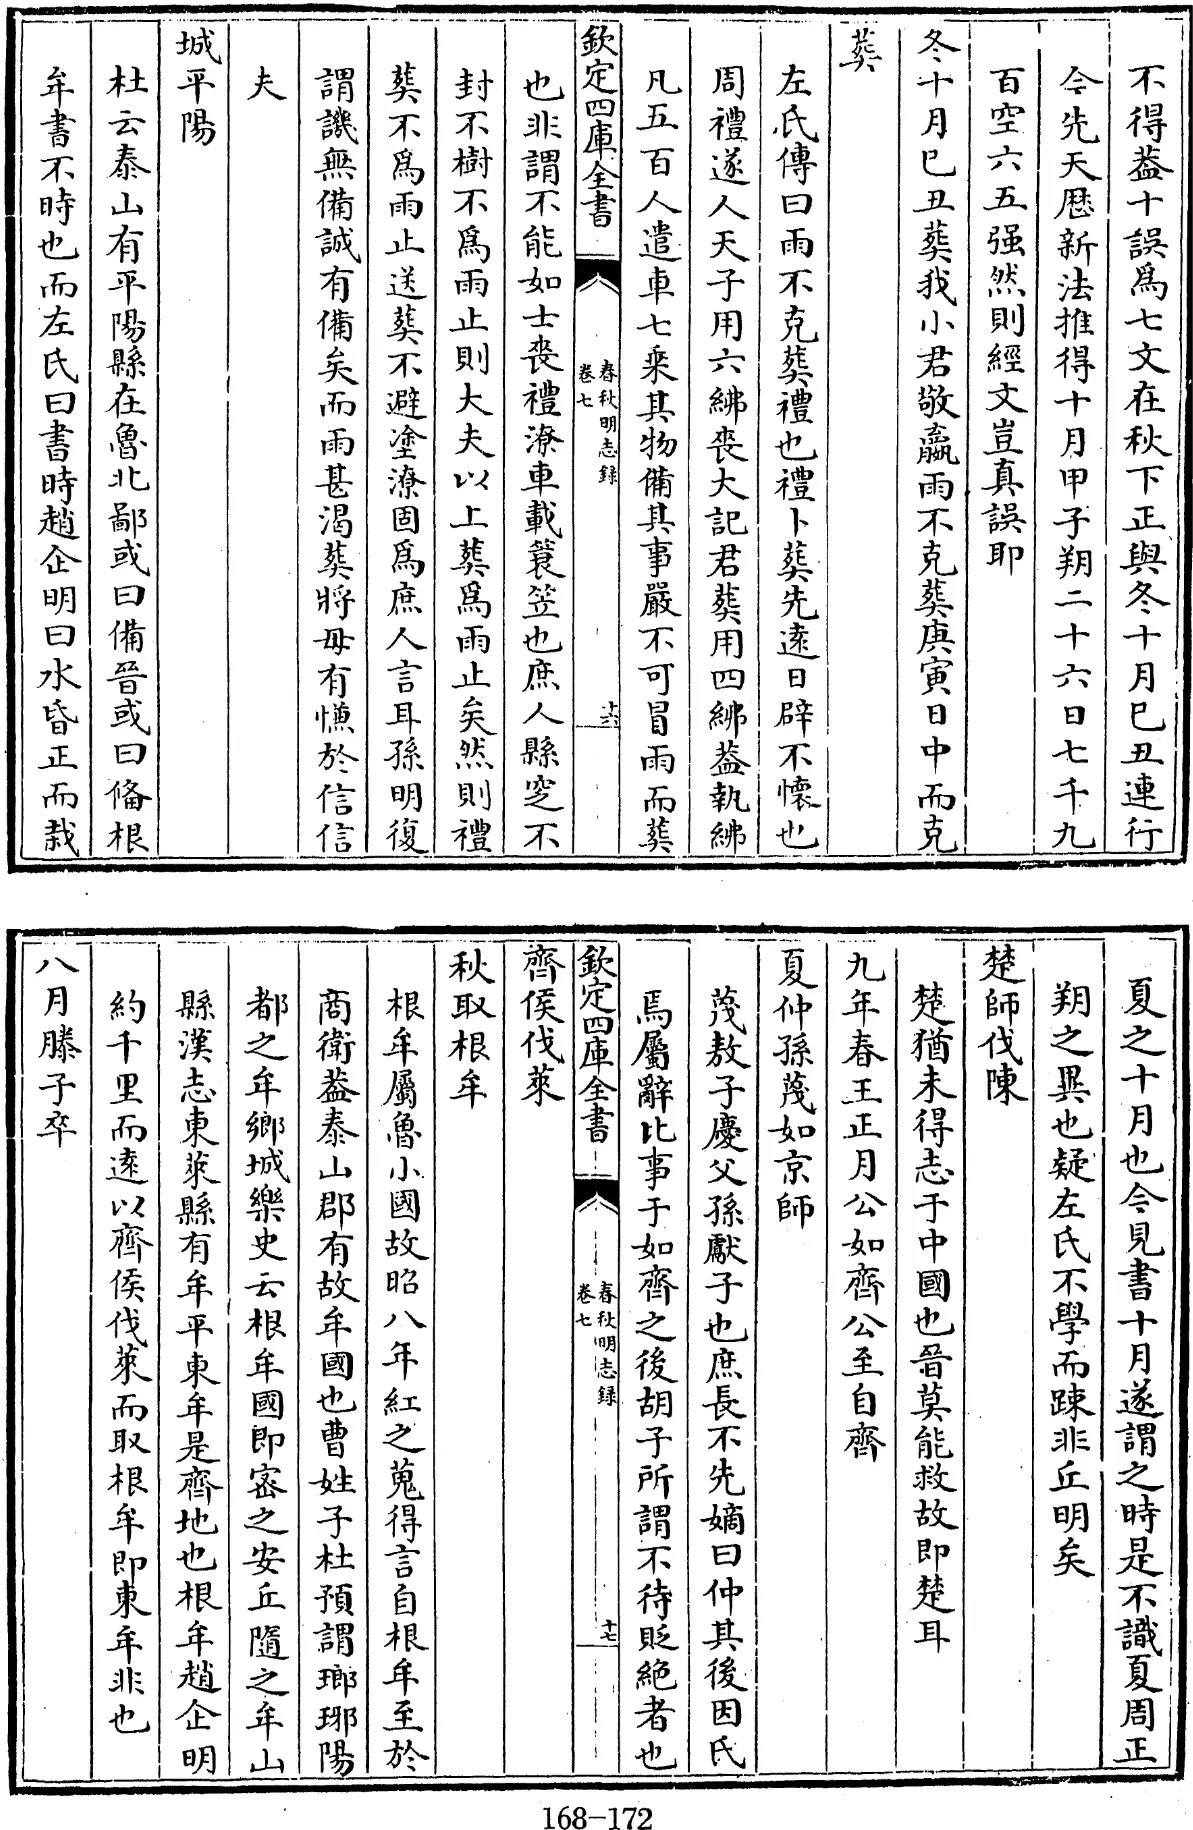 不得葢十誤爲七文在秋下正與冬十月巳丑連行
今先天厯新法推得十月甲子朔二十六日七千九
百空六五强然則經文豈真誤耶
冬十月巳丑葬我小君敬嬴雨不克葬庚寅日中而克
葬
左氏傳曰雨不克葬禮也禮卜葬先逺日辟不懷也
周禮遂人天子用六紼喪大記君葬用四紼葢執紼
凡五百人遣車七乗其物備其事嚴不可冒雨而葬
欽定四庫全書
春秋明志録
卷七
十六
也非謂不能如士喪禮潦車載簑笠也庶人縣窆不
封不樹不爲雨止則大夫以上葬爲雨止矣然則禮
葬不爲雨止送葬不避塗潦固爲庶人言耳孫明復
謂譏無備誠有備矣而雨甚渴葬將毋有慊於信信
夫
城平陽
杜云泰山有平陽縣在魯北鄙或曰備晉或曰偹根
牟書不時也而左氏曰書時趙企明曰水昏正而栽
夏之十月也今見書十月遂謂之時是不識夏周正
朔之異也疑左氏不學而踈非丘明矣
楚師伐陳
楚猶未得志于中國也晉莫能救故即楚耳
九年春王正月公如齊公至自齊
夏仲孫蔑如京師
蔑敖子慶父孫獻子也庶長不先嫡曰仲其後因氏
焉屬辭比事于如齊之後胡子所謂不待貶絶者也
欽定四庫全書
春秋明志録
卷七
十七
齊侯伐萊
秋取根牟
根牟屬魯小國故昭八年紅之蒐得言自根牟至於
商衛葢泰山郡有故牟國也曹姓子杜預謂瑯琊陽
都之牟鄉城樂史云根牟國即密之安丘隨之牟山
縣漢志東萊縣有牟平東牟是齊地也根牟趙企明
約千里而逺以齊侯伐萊而取根牟即東牟非也
八月滕子卒
168-172